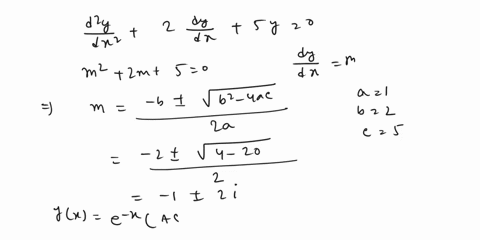 d²y/dx² + 2 dy/dx + 5y = 0
m² + 2m + 5 = 0
dy/dx = m
⇒ m = (-b ± √(b²-4ac))/2a
a = 1
b = 2
c = 5
= (-2 ± √(4-20))/2
= -1 ± 2i
y(x) = e^-x ( AC